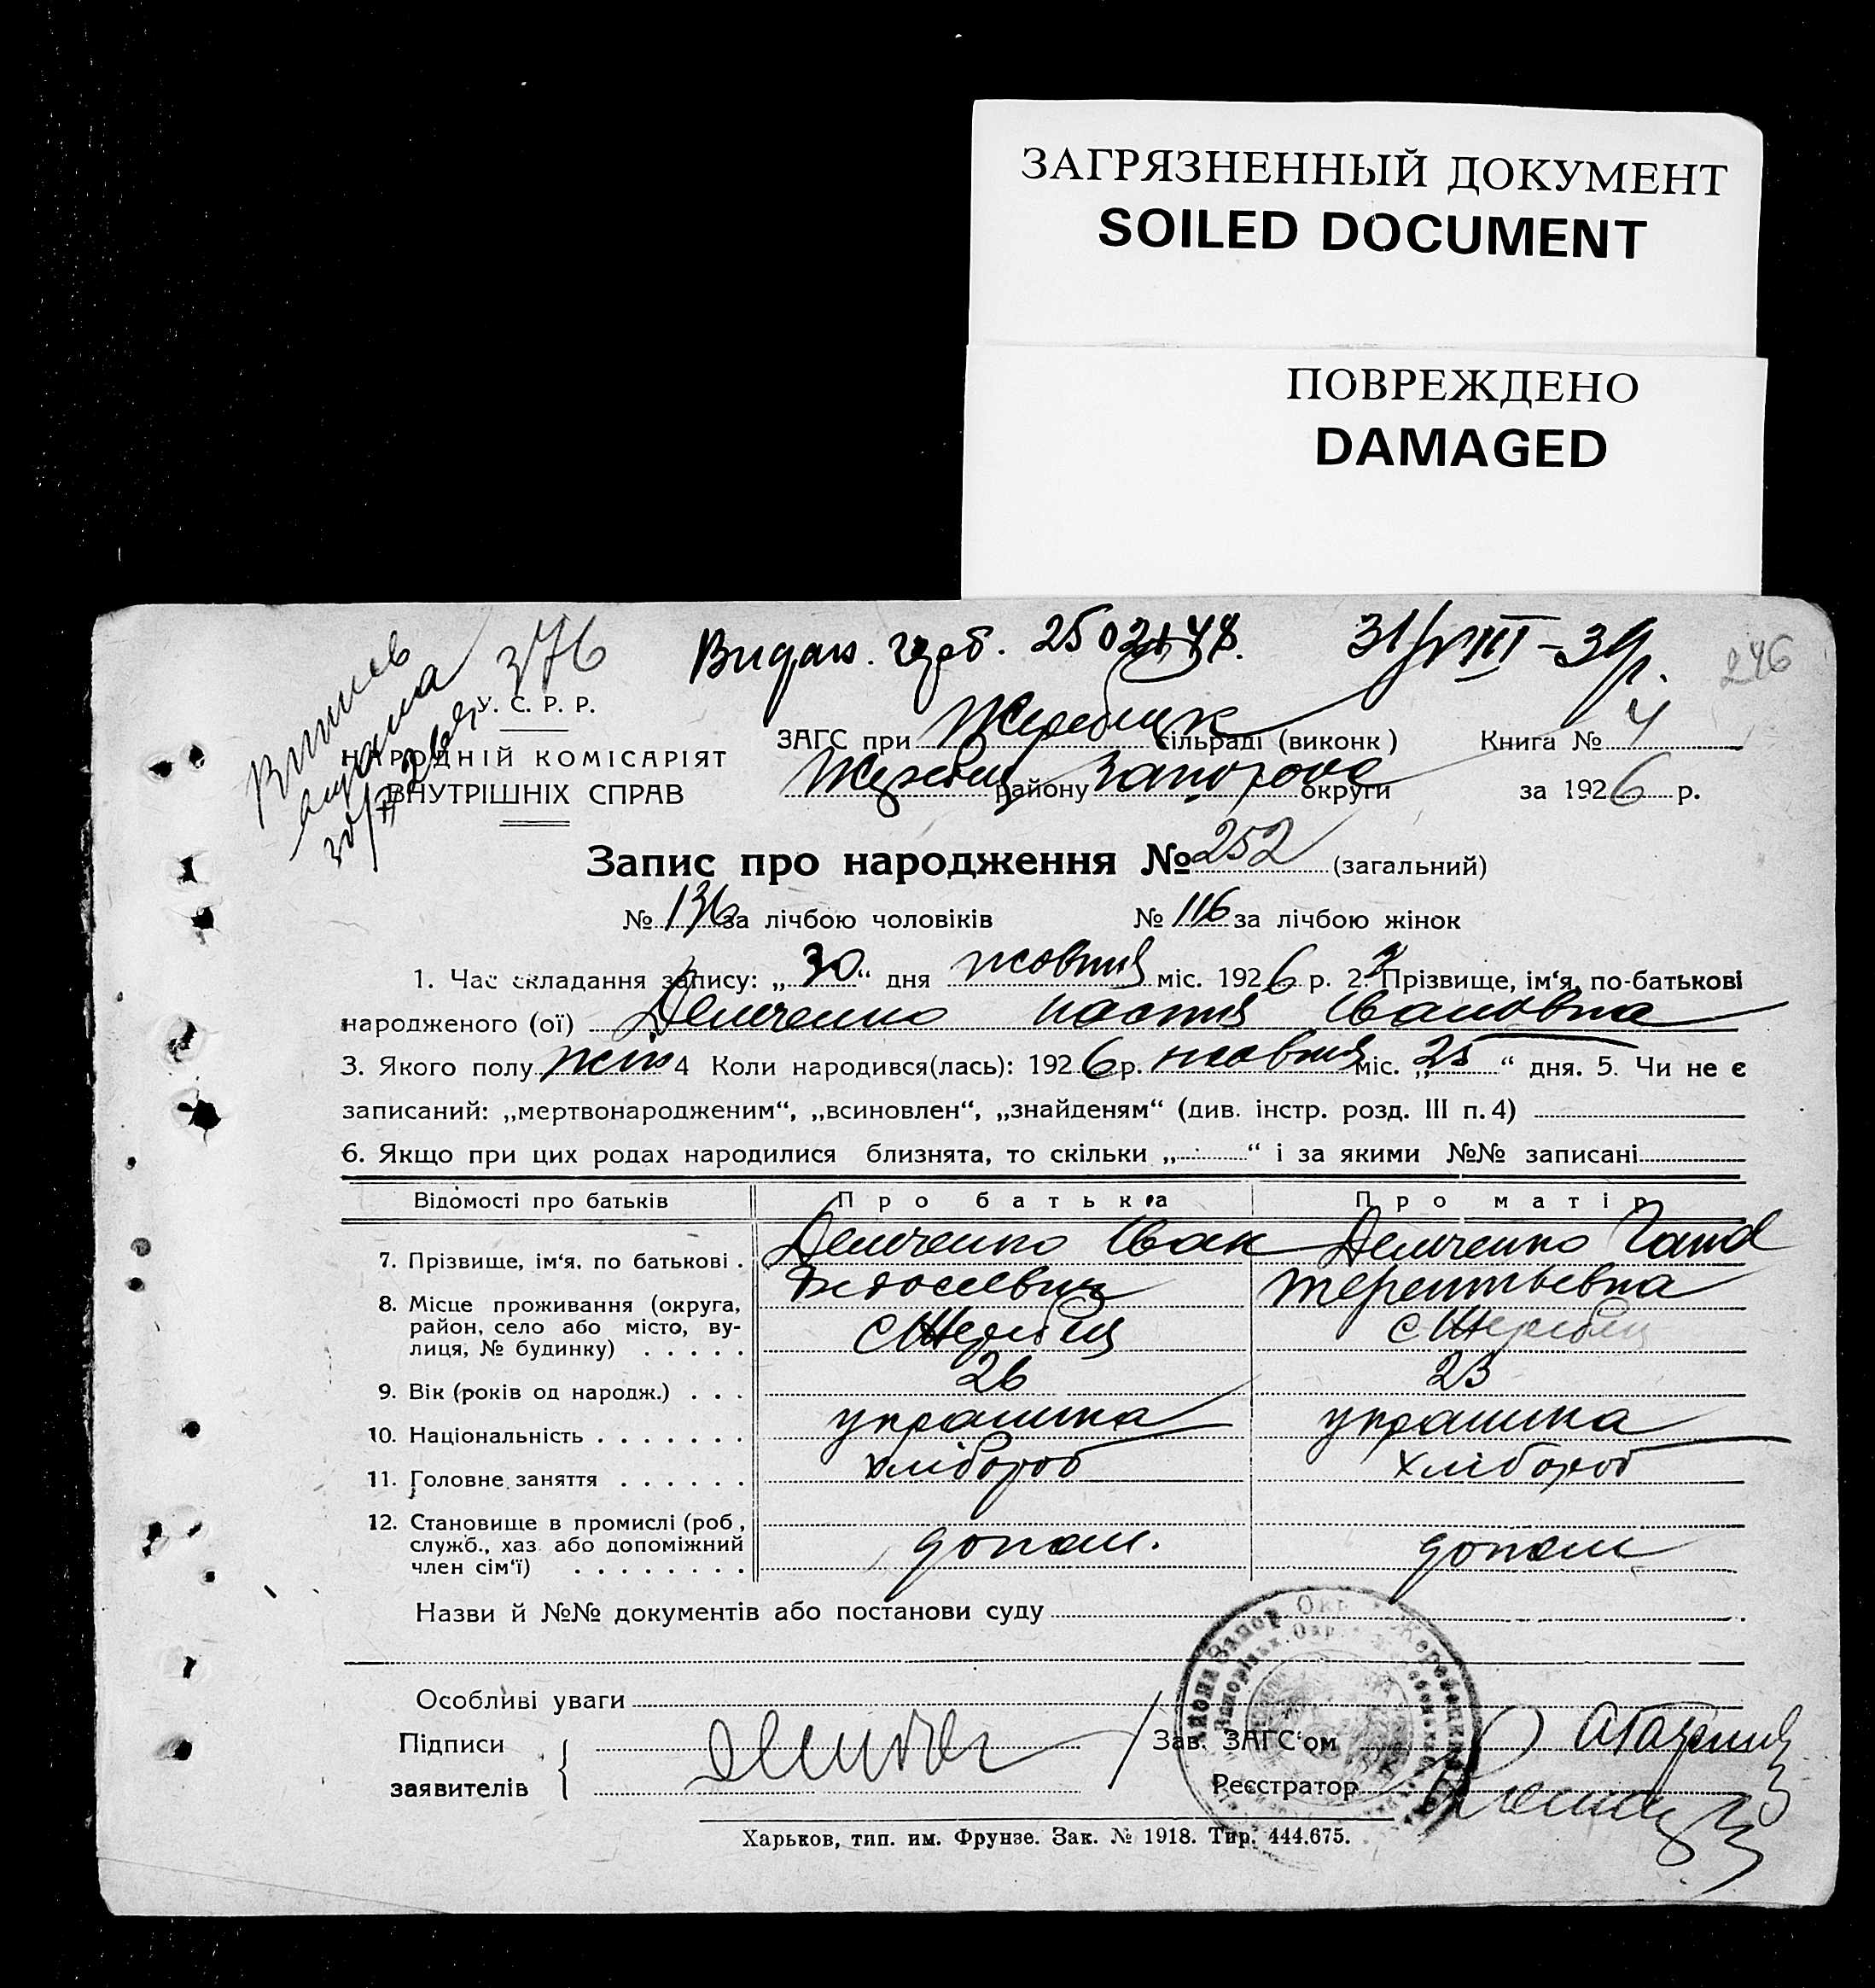 ЗАГРЯЗНЕННЫЙ ДОКУМЕНТ
SOILED DOCUMENT
ПОВРЕЖДЕНО
DAMAGED
376
31/VIII-39р.
246
У. С. Р. Р.
НАРОДНІЙ КОМІСАРІЯТ
ВНУТРІШНІХ СПРАВ
ЗАГС при Жеребецк сільраді (виконк) Книга № 4
Жеребец району Запорожс округи за 1926 р.
Запис про народження № 252 (загальний)
№ 136 за лічбою чоловіків № 116 за лічбою жінок
1. Час складання запису: „30“ дня жовтня міс. 1926 р. 2. Прізвище, ім‘я, по-батькові
народженого (ої) Демченко Настя Івановна
3. Якого полу жін 4 Коли народився(лась): 1926 р. жовтня міс. „25“ дня. 5. Чи не є
записаний: „мертвонародженим“, „всиновлен“, „знайденям“ (див. інстр. розд. III п. 4)
6. Якщо при цих родах народилися близнята, то скільки „ “ і за якими №№ записані
Відомості про батьків Про батька Про матір
7. Прізвище, ім‘я, по батькові . Демченко Іван Демченко Ганна
Терентьевна
8. Місце проживання (округа,
район, село або місто, ву-
лиця, № будинку) . . . . . с Жеребец с Жеребец
9. Вік (років од народж.) . . . 26 23
10. Національність . . . . . . . украинка украинка
11. Головне заняття . . . . . . хлібороб хлібороб
12. Становище в промислі (роб.,
служб., хаз. або допоміжний
член сім‘ї) . . . . . . . . допом. допом
Назви й №№ документів або постанови суду
Особливі уваги
Підписи
заявителів
Зав. ЗАГС‘ом
Реєстратор
Харьков, тип. им. Фрунзе. Зак. № 1918. Тир. 444.675.